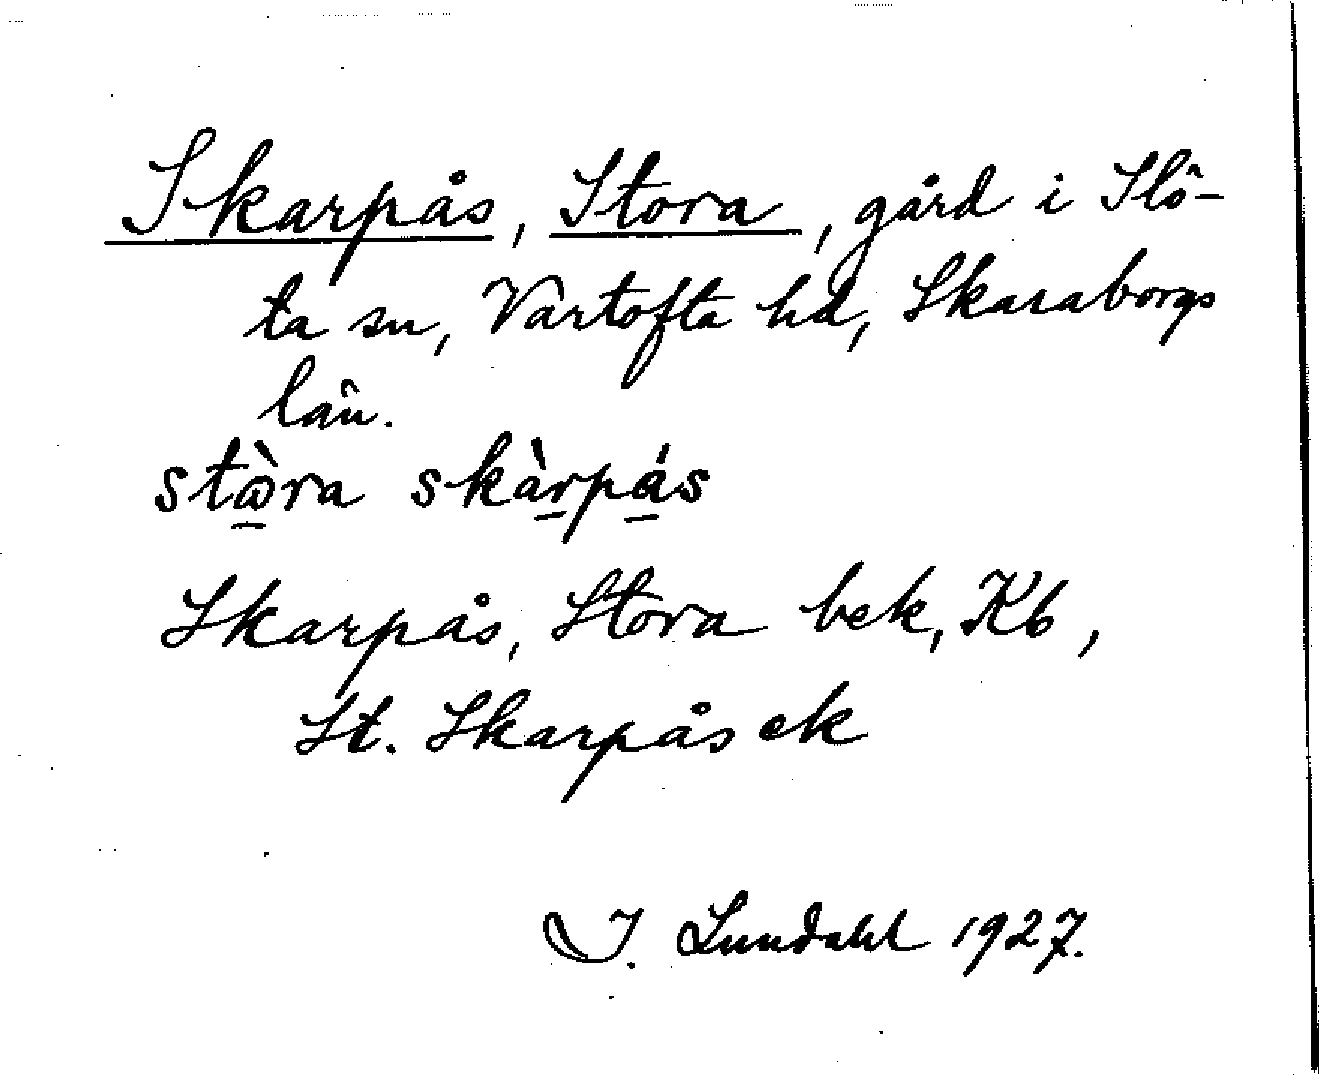 Skarpås, Stora, gård i Slö-
ta sn, Vartofta hd, Skaraborgs
län.
stὼra skàrpás
Skarpås, Stora bek, Kb,
St. Skarpås ek
I. Lundahl 1927.